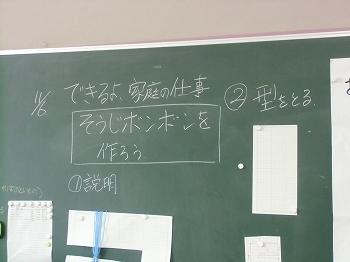 11/6 できるよ、家庭の仕事
そうじボンボンを
作ろう
①説明
②型をとる